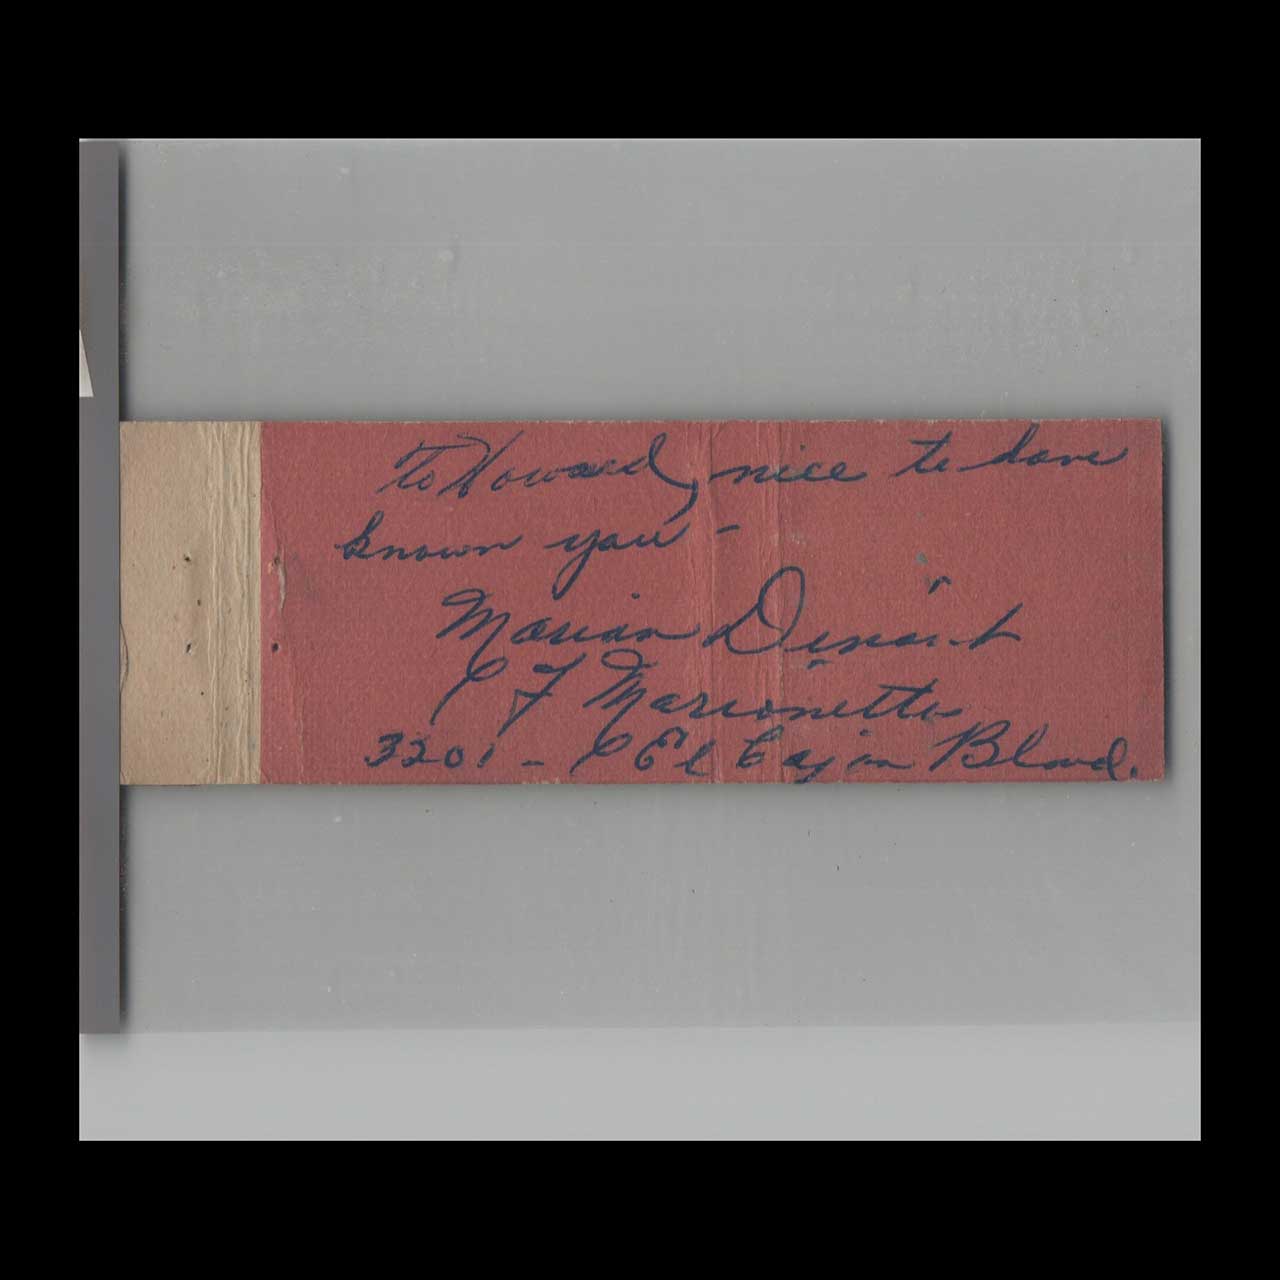 to Howard, nice to have
known you -
Marian
Marionettes
3201 - El Cajon Blvd.